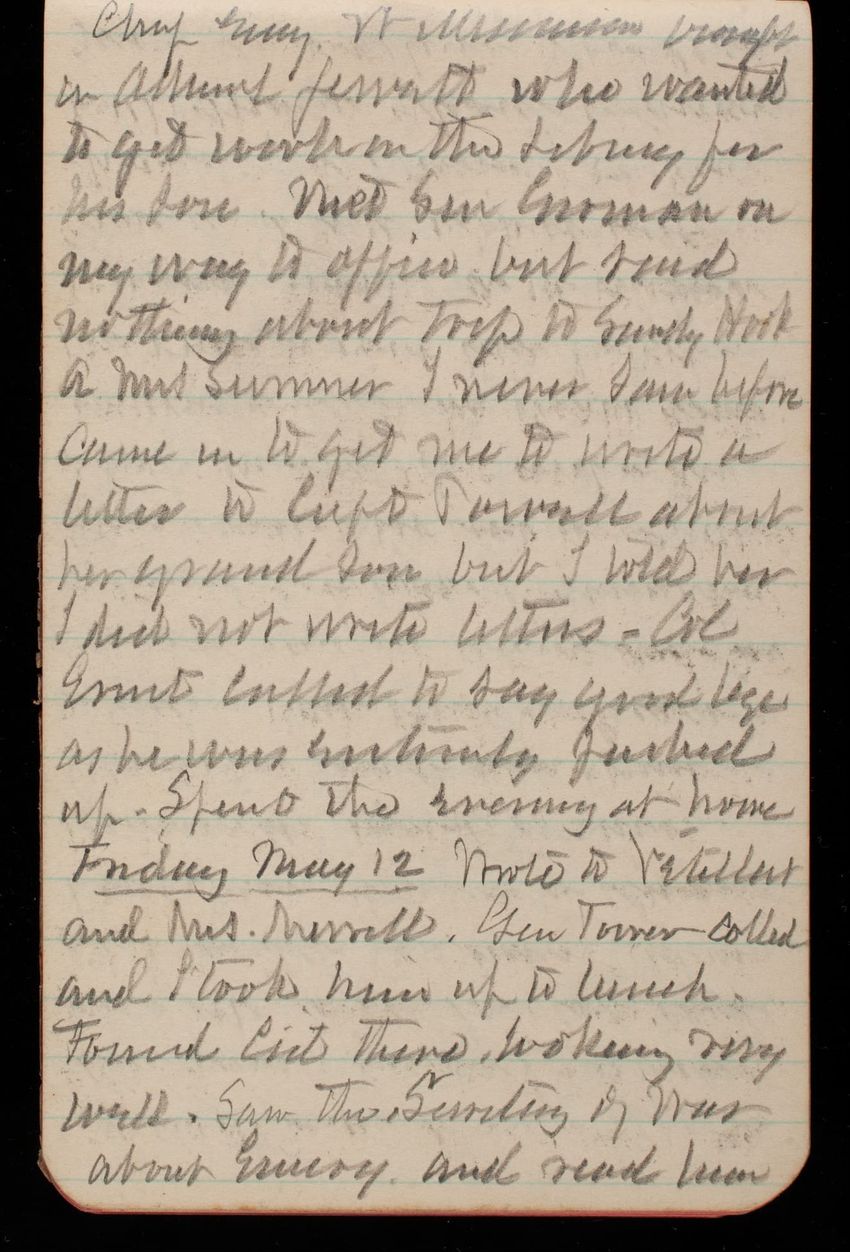 Chf Eng. brought
in Admiral Jewett who wanted
to get work on the Library for
his son. Met Gen Grosman on
my way to office but said
nothing about trip to Sandy Hook
A Mrs Sumner I never saw before
came in to get me to write a
letter to Capt Powell about
her grand son but I told her
I did not write letters - Col
Ernst called to say good bye
as he was entirely packed
up. Spent the evening at home
Friday May 12 Wrote to
and Mrs. Merrill. Gen Tower called
and I took him up to lunch.
Found Cist there, looking very
well. Saw the Secretary of War
about Emory. and read him